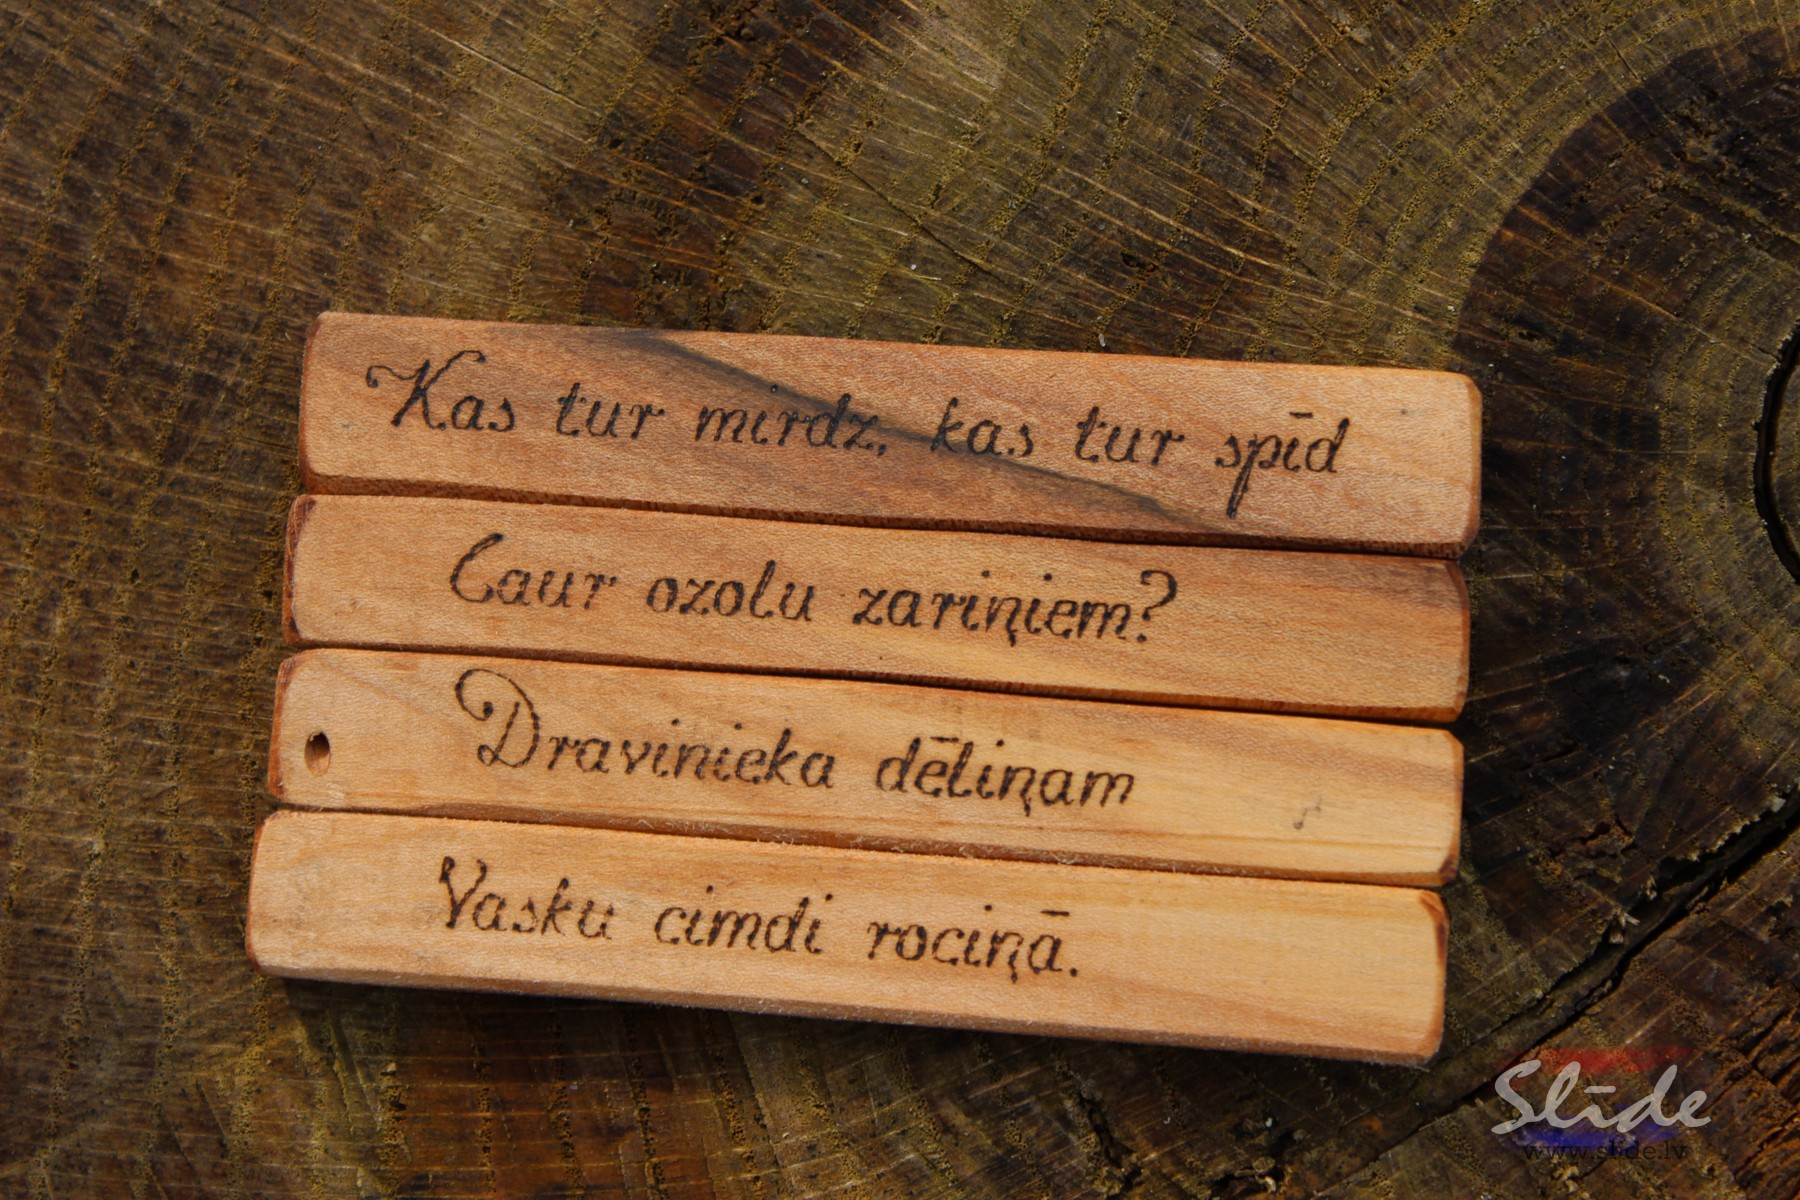 Kas tur mirdz, kas tur spīd
Caur ozolu zariņiem?
Dravinieka dēliņam
Vasku cimdi rociņā.
Slīde
www.slide.lv